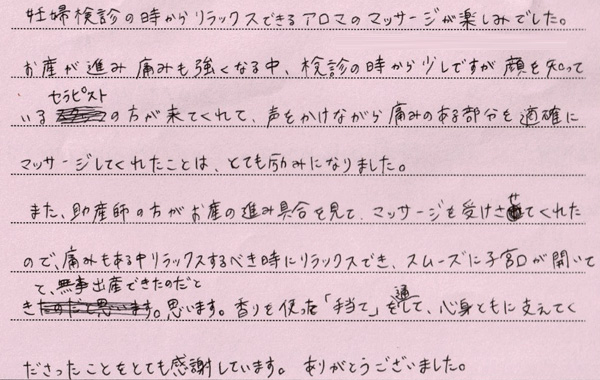 妊婦検診の時からリラックスできるアロマのマッサージが楽しみでした。
お産が進み痛みも強くなる中、検診の時から少しですが顔を知って
セラピスト
いるの方が来てくれて、声をかけながら痛みのある部分を適確に
マッサージしてくれたことは、とても励みになりました。
また、助産師の方がお産の進み具合を見て、マッサージを受けさせてくれた
ので、痛みもある中リラックスするべき時にリラックスでき、スムーズに子宮口が開いて
て、無事出産できたのだと
きたのだと思います。思います。香りを使った「手当て」を通して、心身ともに支えてく
ださったことをとても感謝しています。ありがとうございました。